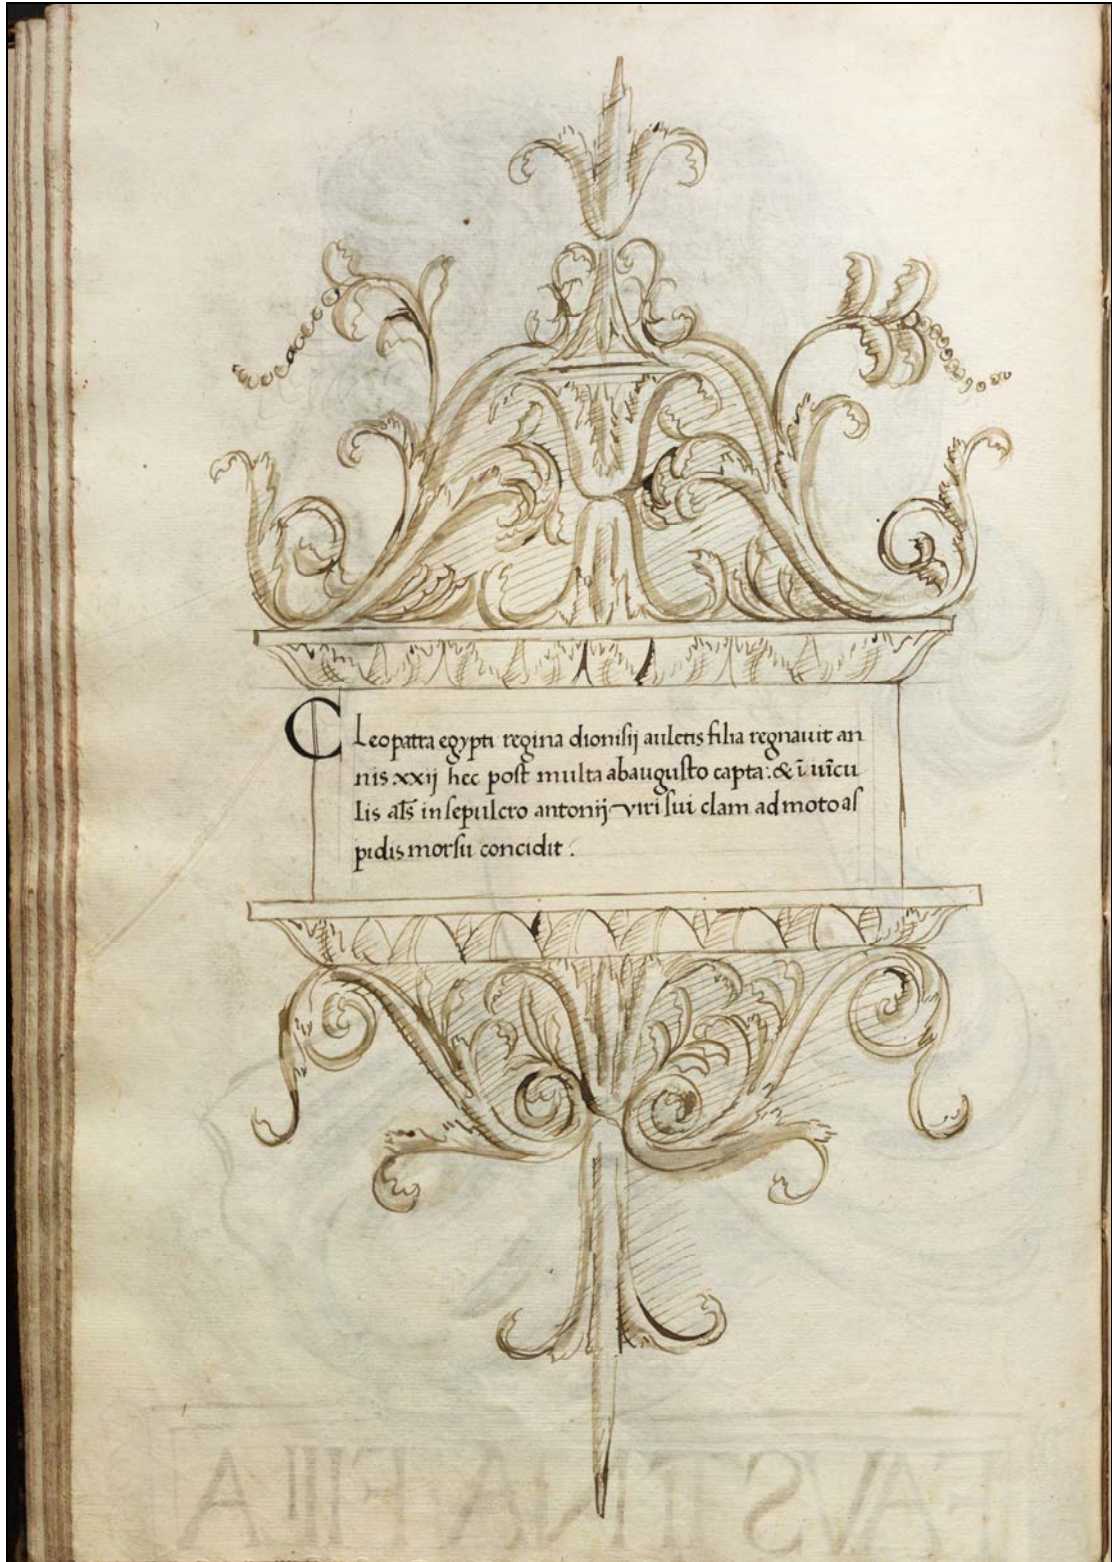 Cleopatra egypti regina dionisij auletis filia regnauit an
nis xxij hec post multa abaugusto capta: & ī uīcu
lis als̄ in sepulcro antonij viri sui clam ad moto as
pidis morsu concidit .
FAVSTINA FILIA